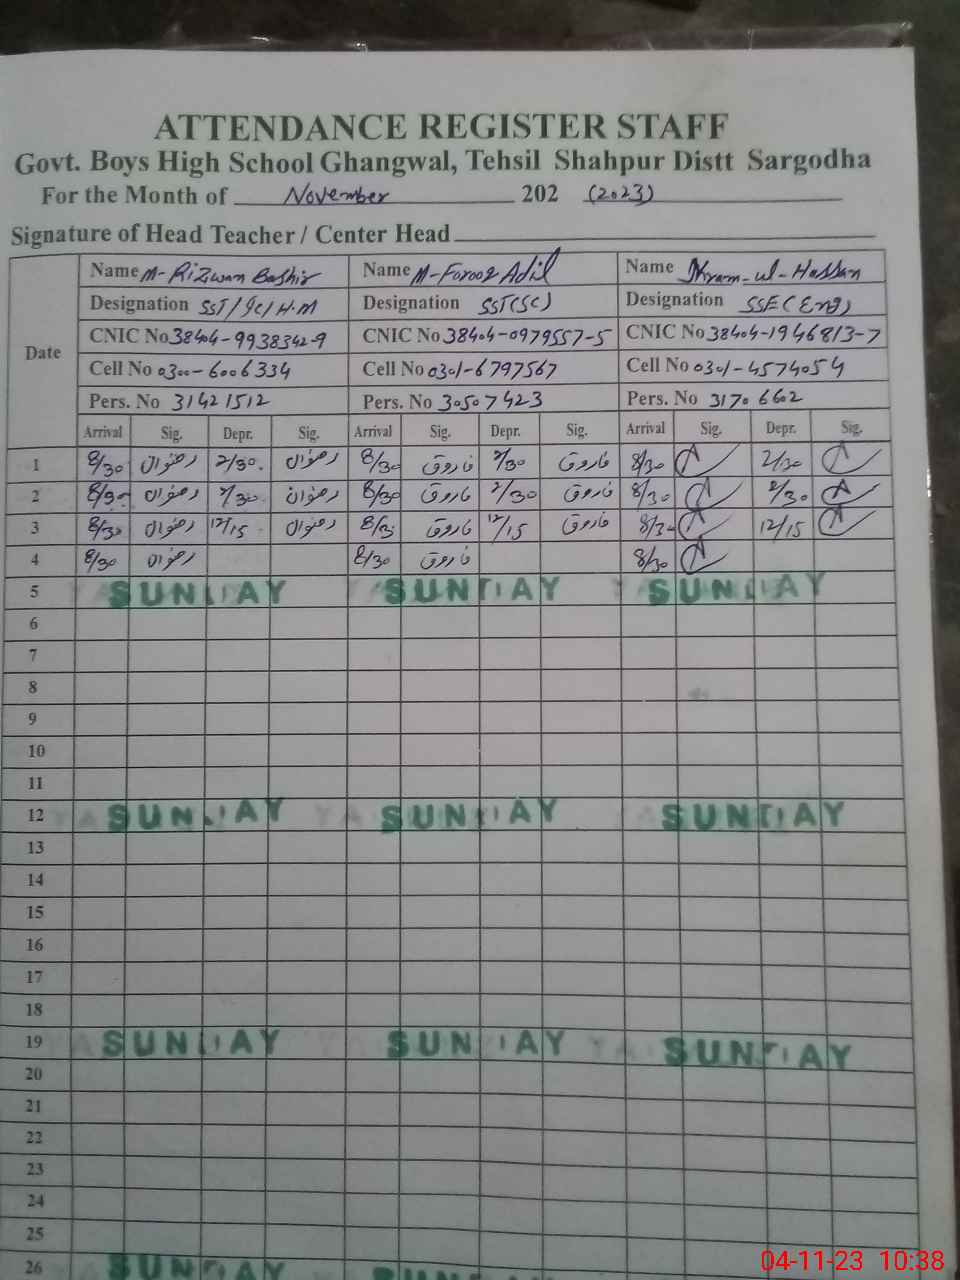 ATTENDANCE REGISTER STAFF
Govt. Boys High School Ghangwal, Tehsil Shahpur Distt Sargodha
For the Month of November 202 (2023)
Signature of Head Teacher / Center Head
Date Name M-Rizwan Bashir Name M-Farooq Adil Name Ikram-ul-Hassan
Designation SST/Sc/H.M Designation SST(SC) Designation SSE(Eng)
CNIC No 38404-9938342-9 CNIC No 38404-0979557-5 CNIC No 38404-1946813-7
Cell No 0300-6006334 Cell No 0301-6797567 Cell No 0301-4574054
Pers. No 31421512 Pers. No 30507423 Pers. No 31706602
Arrival Sig. Depr. Sig. Arrival Sig. Depr. Sig. Arrival Sig. Depr. Sig.
1 8/30 رضوان 2/30 رضوان 8/30 فاروق 2/30 فاروق 8/30 2/30
2 8/30 رضوان 2/30 رضوان 8/30 فاروق 2/30 فاروق 8/30 2/30
3 8/30 رضوان 12/15 رضوان 8/30 فاروق 12/15 فاروق 8/30 12/15
4 8/30 رضوان 8/30 فاروق 8/30
5 SUNDAY SUNDAY SUNDAY
6
7
8
9
10
11
12 SUNDAY SUNDAY SUNDAY
13
14
15
16
17
18
19 SUNDAY SUNDAY SUNDAY
20
21
22
23
24
25
26 SUNDAY SUNDAY
04-11-23 10:38